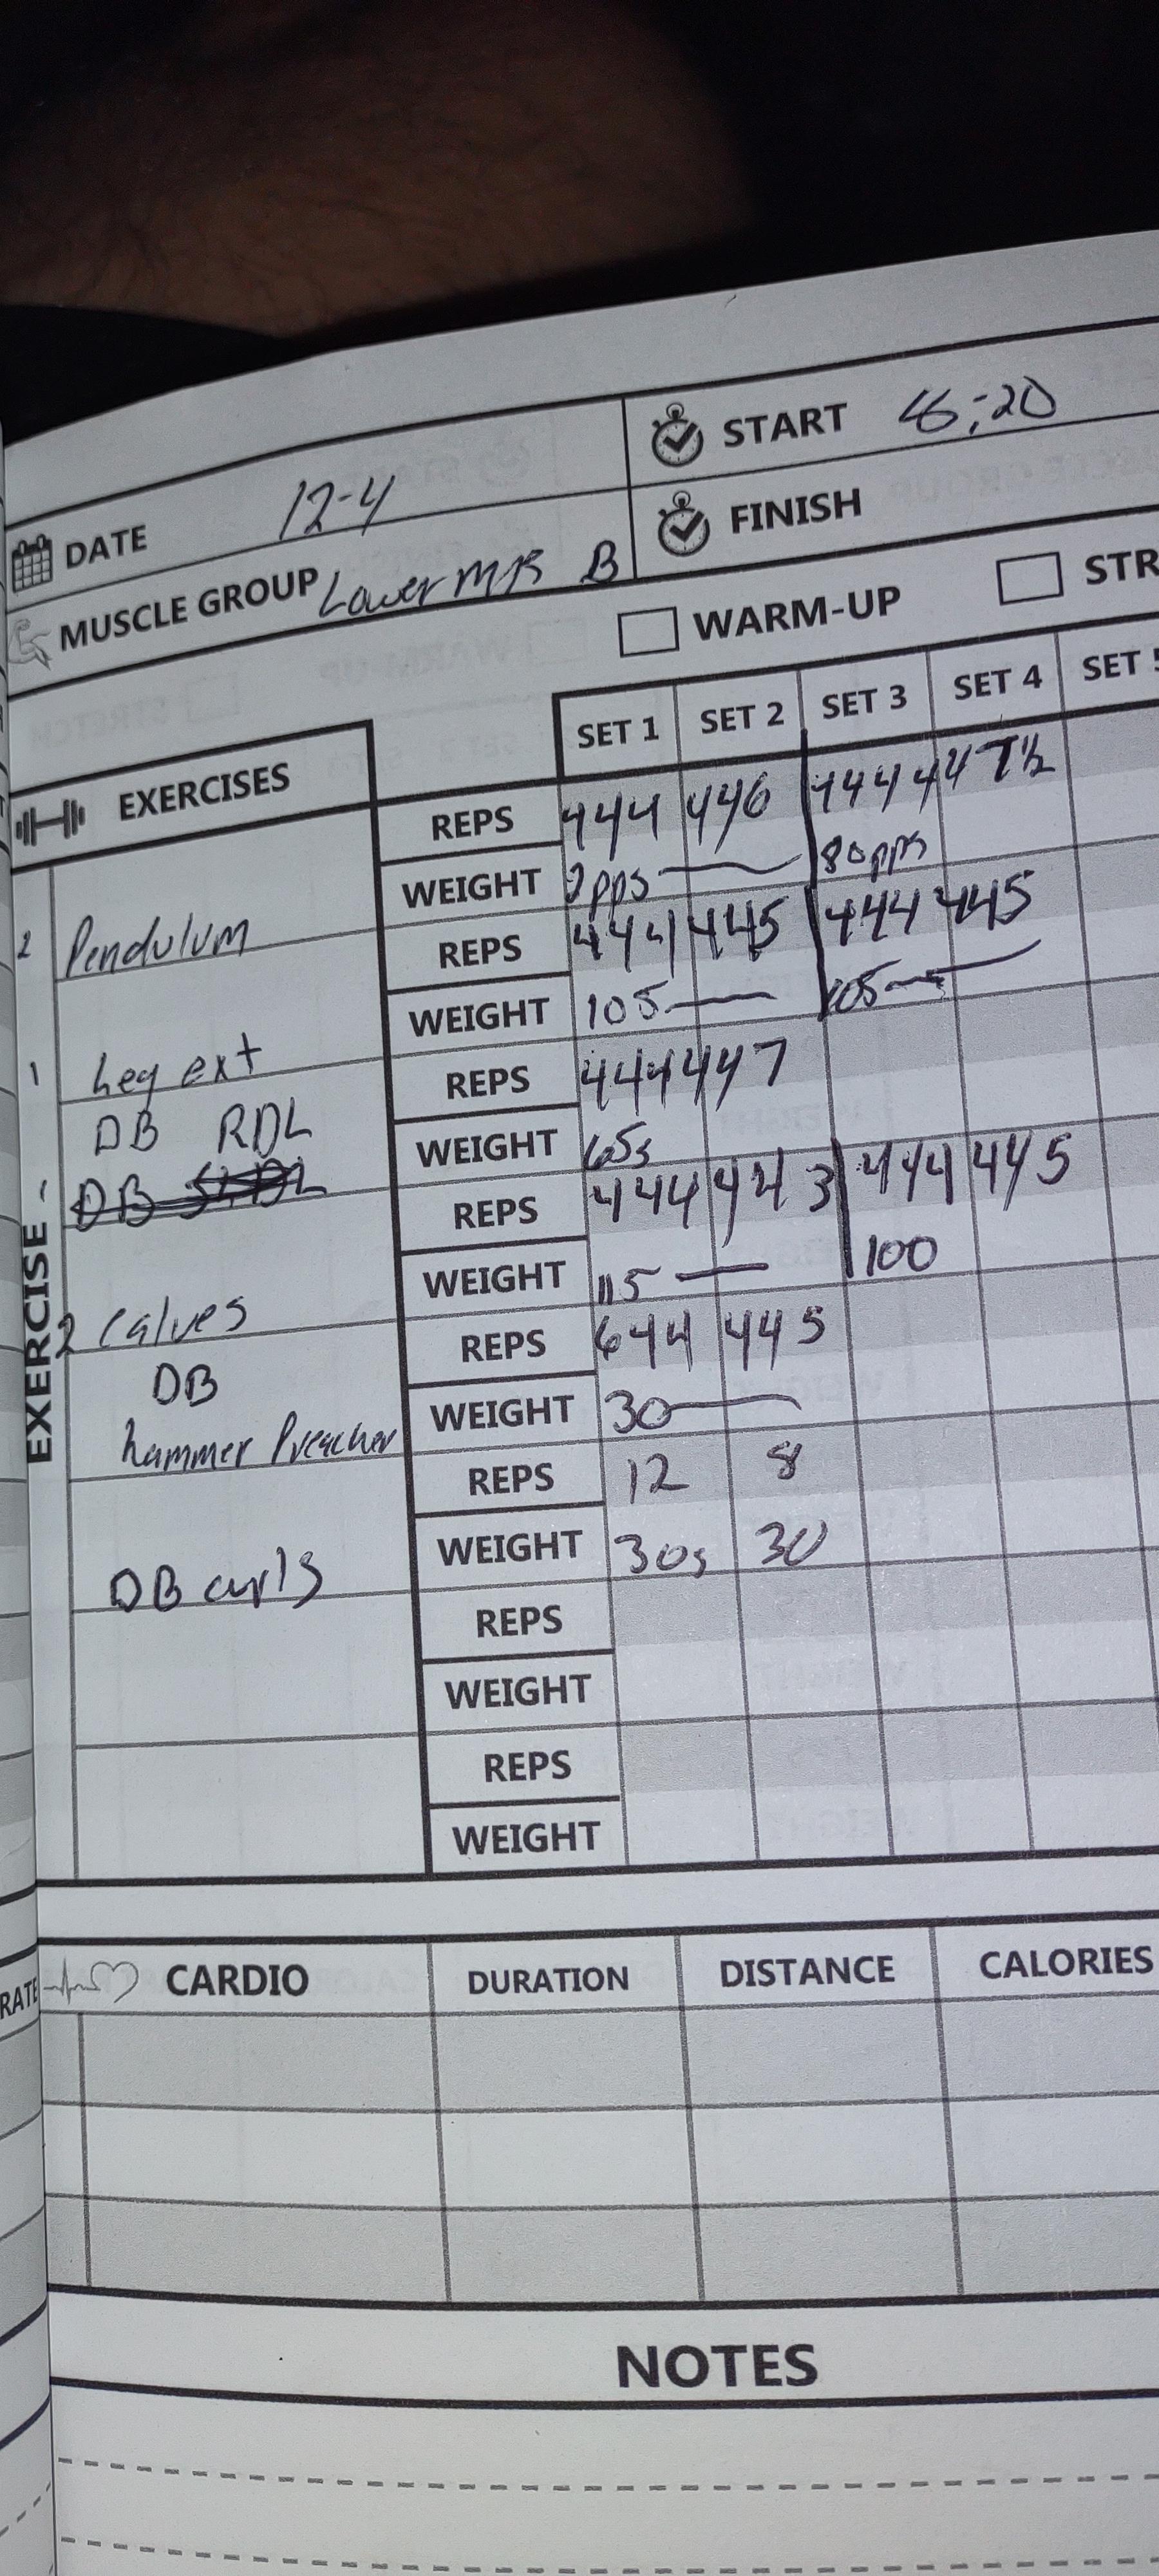 START 6:20
DATE 12-4
FINISH
MUSCLE GROUP Lower MR B
WARM-UP STR
EXERCISES SET 1 SET 2 SET 3 SET 4 SET 5
REPS 444 446 444 44 7½
2 Pendulum WEIGHT 2pps 80pps
REPS 444 445 444 445
1 Leg ext WEIGHT 105 105
DB RDL REPS 444 447
DB WEIGHT 65s
REPS 444 443 444 445
2 Calves WEIGHT 115 100
DB REPS 644 445
hammer Preacher WEIGHT 30
REPS 12 8
DB curls WEIGHT 30s 30
REPS
WEIGHT
REPS
WEIGHT
EXERCISE
RATE
CARDIO DURATION DISTANCE CALORIES
NOTES